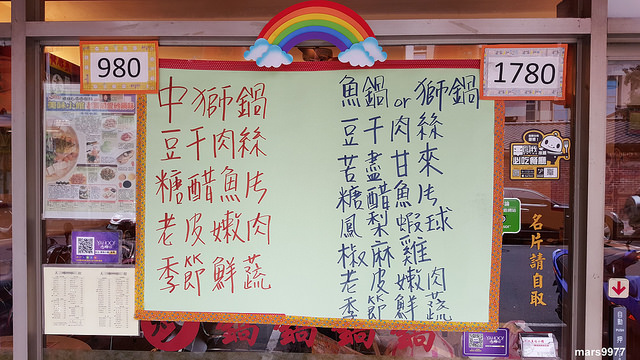 980
中獅鍋
豆干肉絲
糖醋魚片
老皮嫩肉
季節鮮蔬
1780
魚鍋or獅鍋
豆干肉絲
苦盡甘來
糖醋魚片
鳳梨蝦球
椒麻雞
老皮嫩肉
季節鮮蔬
必吃餐廳
名片請自取
自動
押
鍋 鍋 鍋
mars9977